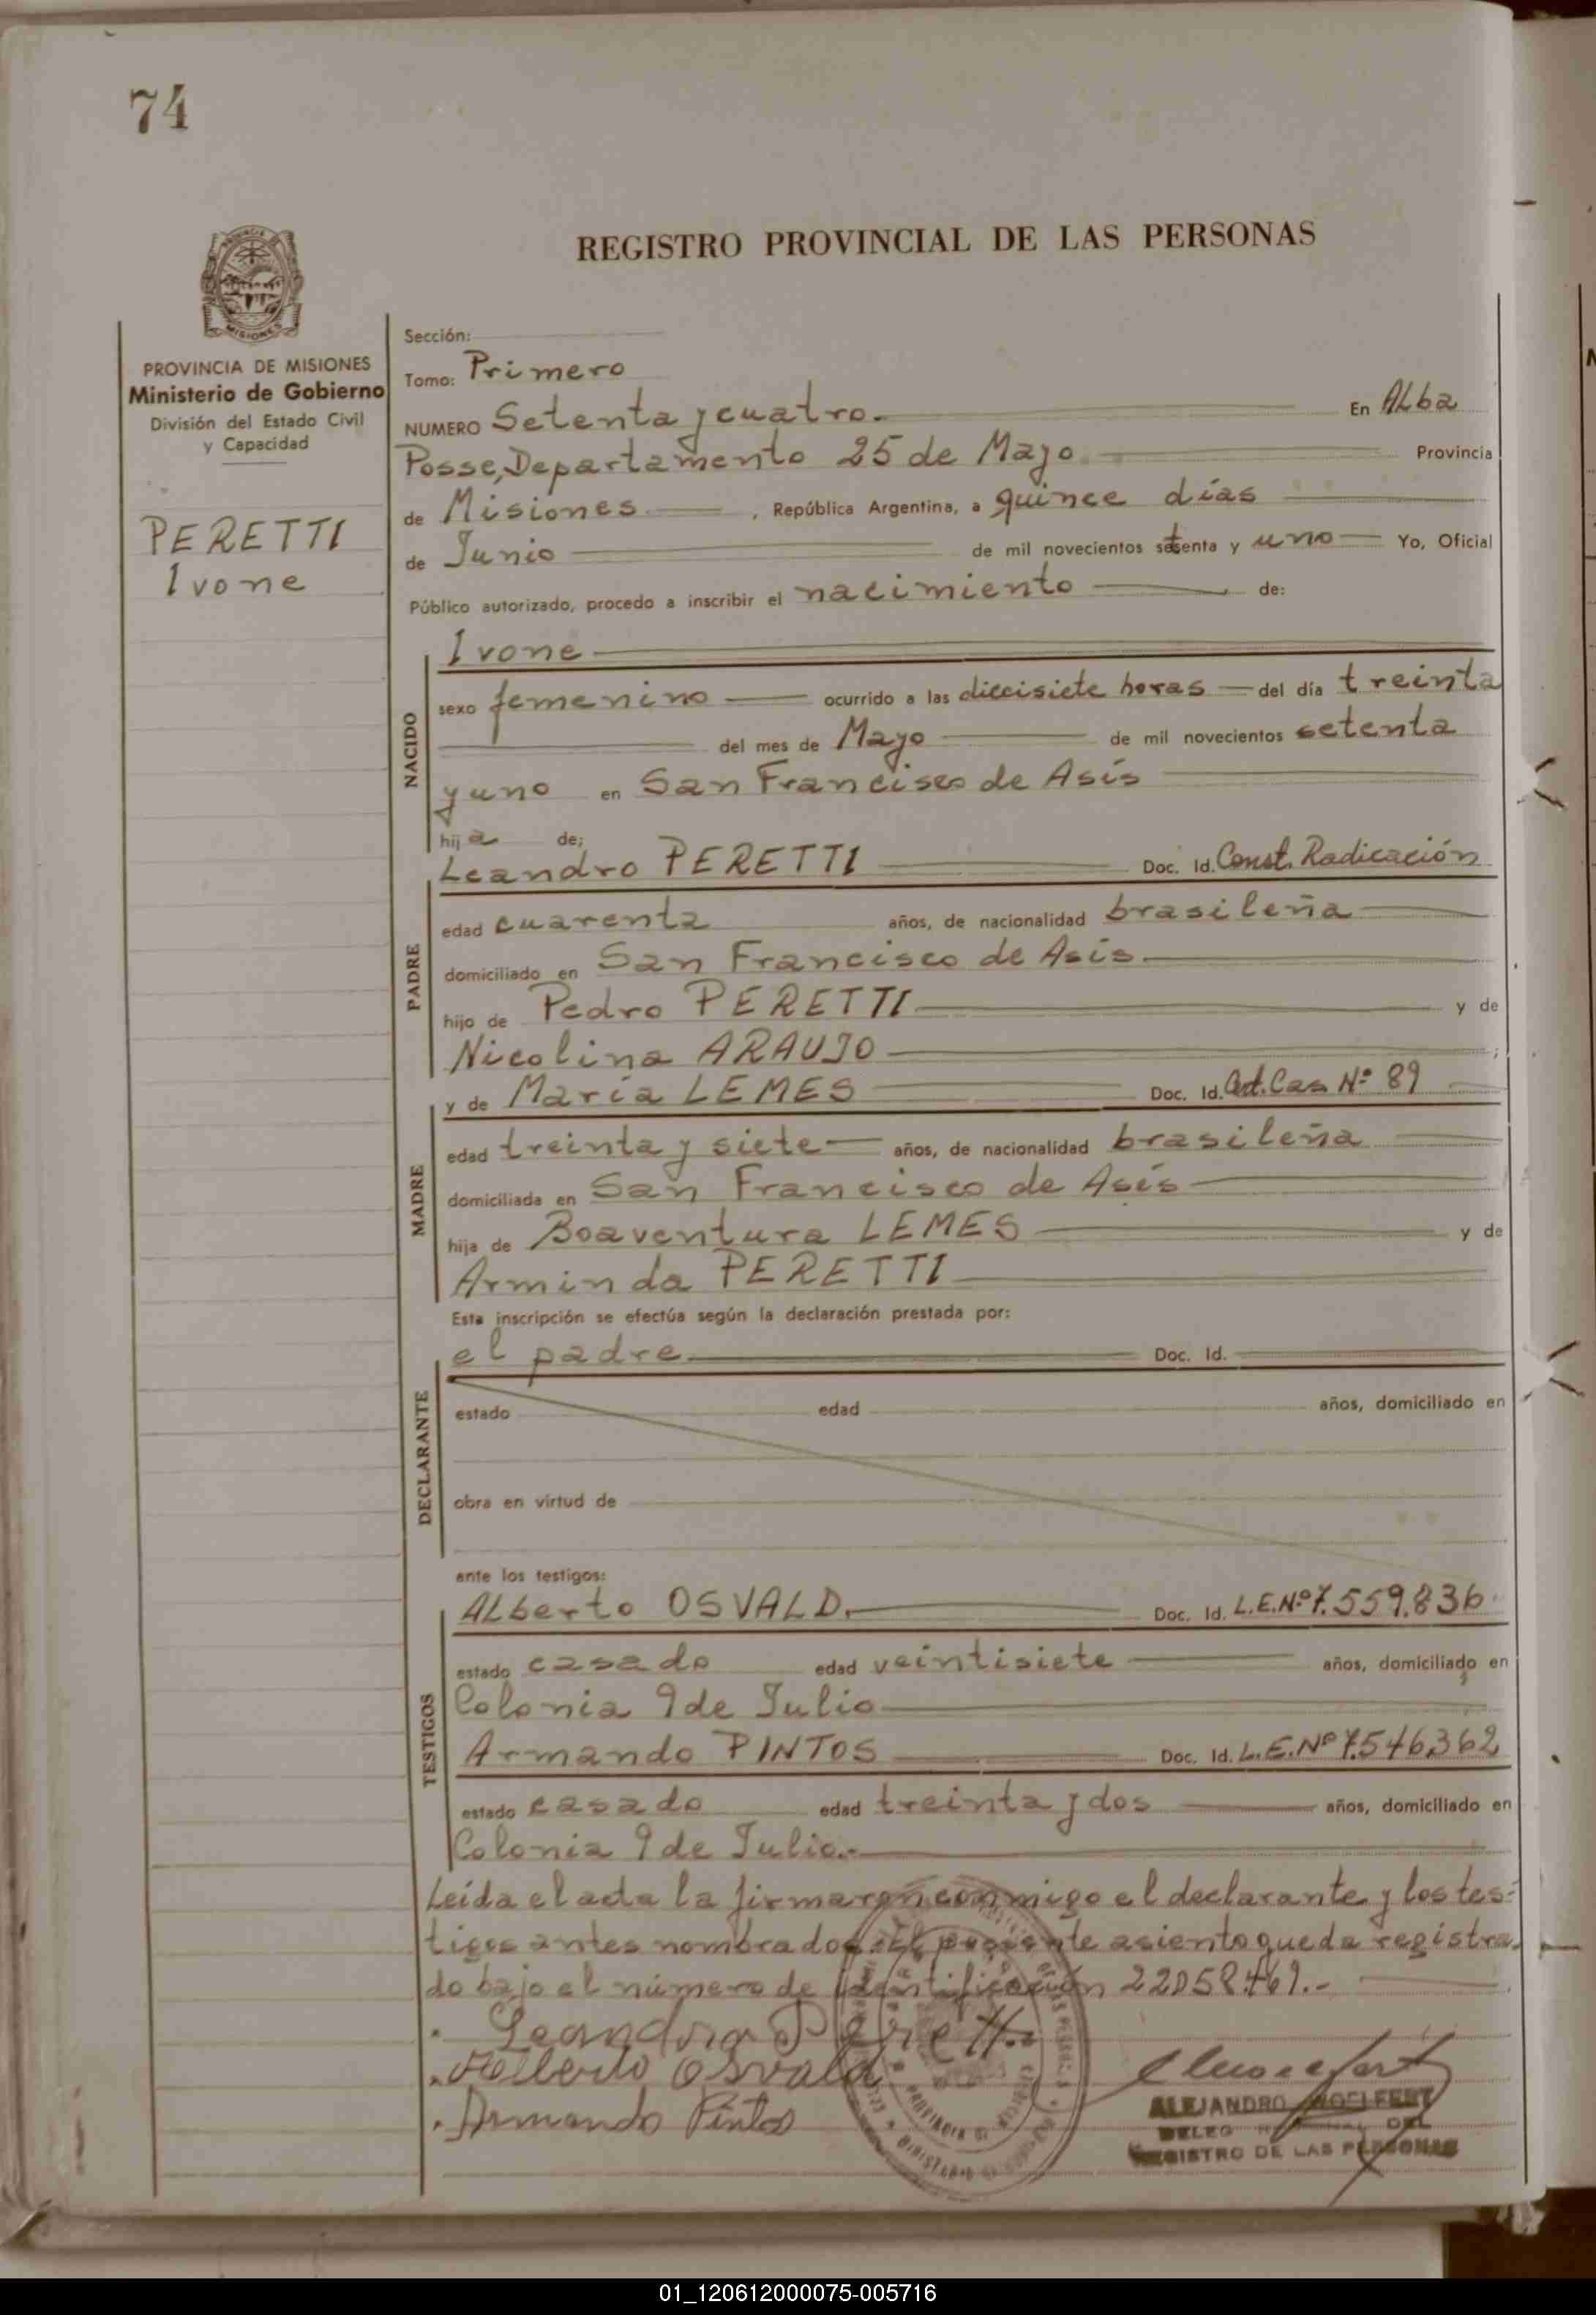 74
REGISTRO PROVINCIAL DE LAS PERSONAS
MISIONES
PROVINCIA DE MISIONES
Ministerio de Gobierno
División del Estado Civil
y Capacidad
PERETTI
Ivone
Sección:
Tomo: Primero
NUMERO Setenta y cuatro. En ALba
Posse, Departamento 25 de Mayo Provincia
de Misiones , República Argentina, a quince días
de Junio de mil novecientos setenta y uno Yo, Oficial
Público autorizado, procedo a inscribir el nacimiento de:
NACIDO
Ivone
sexo femenino ocurrido a las diecisiete horas del día treinta
del mes de Mayo de mil novecientos setenta
y uno en San Francisco de Asís
hija de;
PADRE
Leandro PERETTI Doc. Id. Const. Radicación
edad cuarenta años, de nacionalidad brasileña
domiciliado en San Francisco de Asís
hijo de Pedro PERETTI y de
Nicolina ARAUJO ;
MADRE
y de María LEMES Doc. Id. Cert. Cas Nº 89
edad treinta y siete años, de nacionalidad brasileña
domiciliada en San Francisco de Asís
hija de Boaventura LEMES y de
Arminda PERETTI
Esta inscripción se efectúa según la declaración prestada por:
DECLARANTE
el padre Doc. Id.
estado edad años, domiciliado en
obra en virtud de
ante los testigos:
TESTIGOS
ALberto OSVALD. Doc. Id. L.E.Nº 7.559.836
estado casado edad veintisiete años, domiciliado en
Colonia 9 de Julio
Armando PINTOS Doc. Id. L.E.Nº 7.546362
estado casado edad treinta y dos años, domiciliado en
Colonia 9 de Julio.-
Leída el acta la firmaron conmigo el declarante y los tes-
tigos antes nombrados. El presente asiento queda registra-
do bajo el número de identificación 22058.461.-
Leandro Peretti
Alberto Osvald
Armando Pintos
ALEJANDRO
DEL
REGISTRO DE LAS PERSONAS
01_120612000075-005716